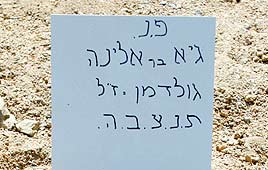 פ.נ.
ג'א בר אלינה
גולדמן. ז"ל
ת.נ.צ.ב.ה.